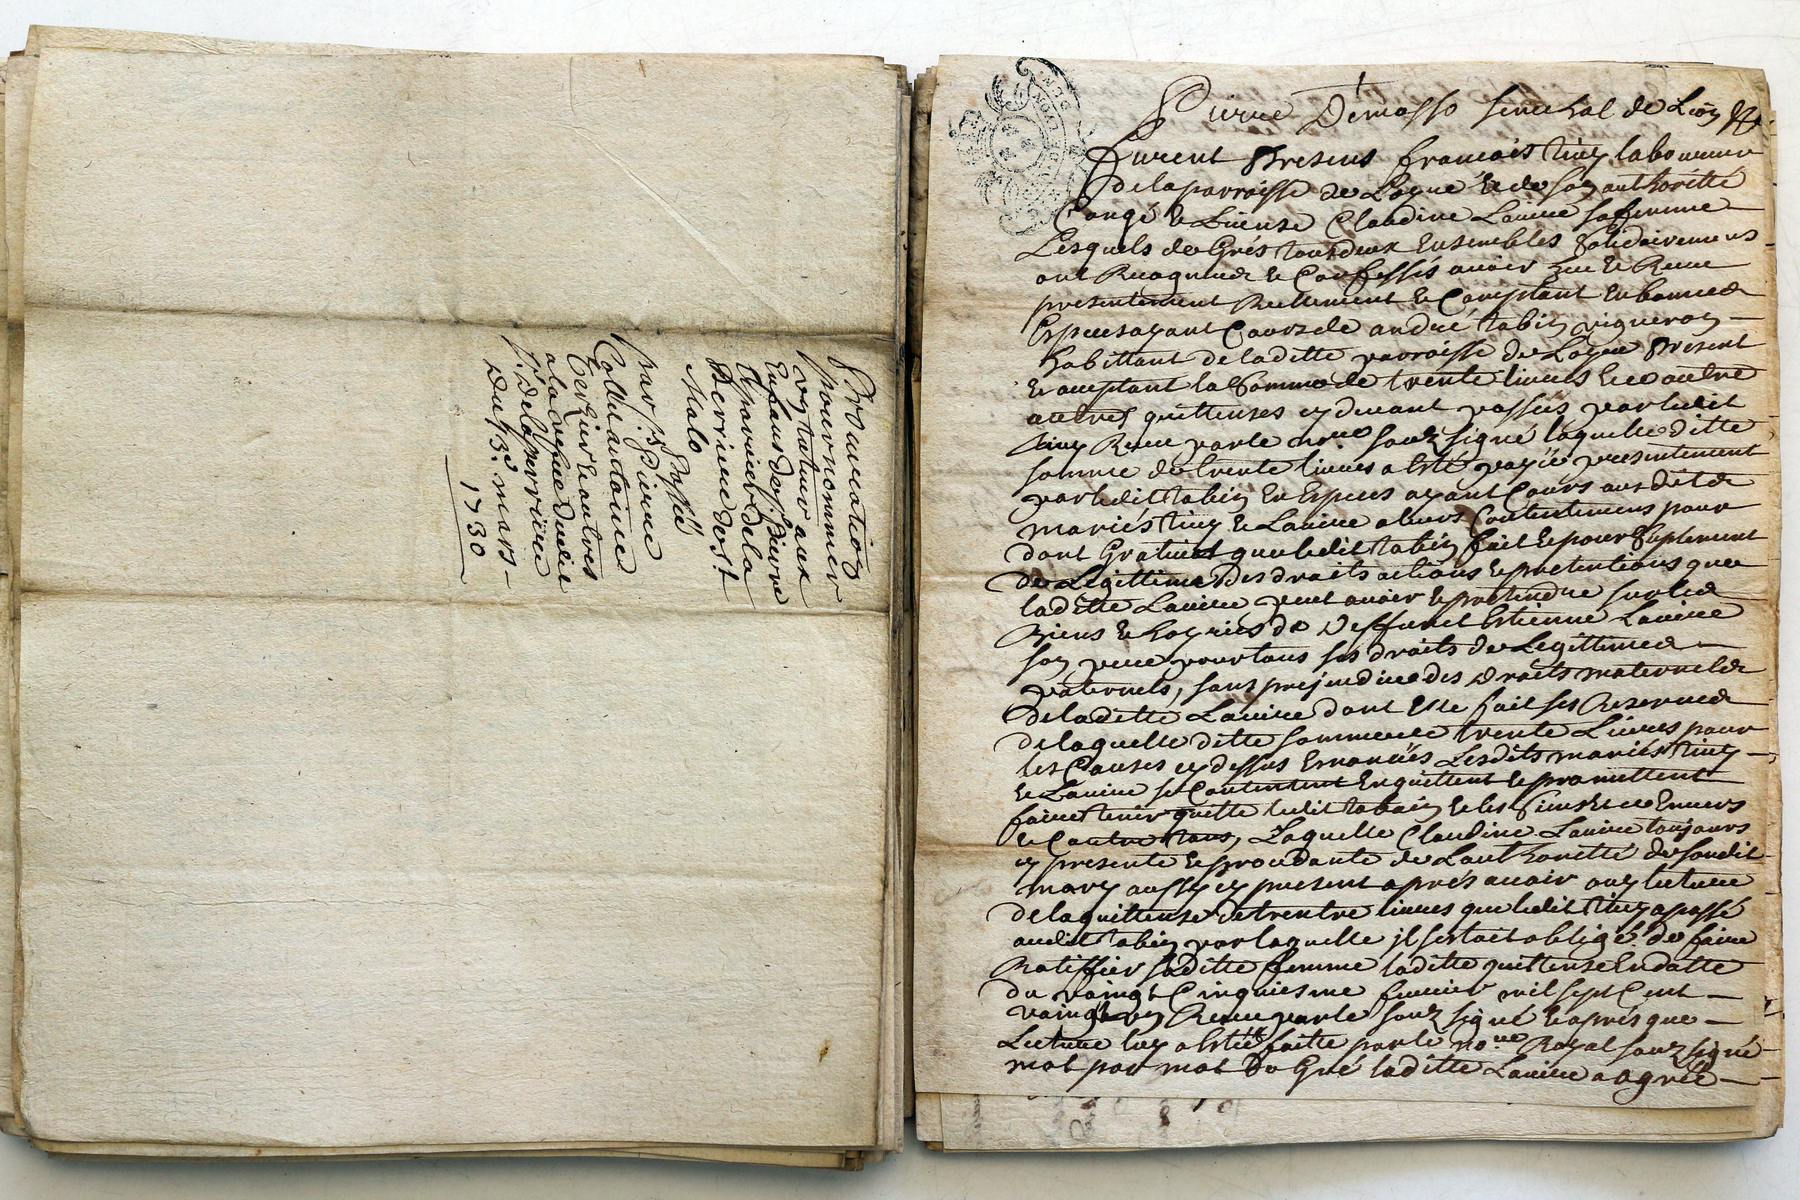 Procuration
pour nommer
vn tuteur aux
Enfans de Sr. Pierre
Eparvier de la
Perrine de St
Malo
Passée
par Sr Pierre
Collet antoine
Terrier & autres
a la veuve
Du 3e. mars
1730
Pierre Demasso senechal de Lion &a
furent Presens francois Tiuy laboureur
de la parroisse de & de son authoritté
Congé & License Claudine Lauiere sa femme
Lesquels de Grés tous deux Ensembles solidairemens
ont Recognus & Confessés auoir heu & Receu
presentement Reellement & Comptant En bonnes
Especes ayant Cours de andré tabin vigneron
habittant de laditte parroisse de Present
& aceptant la Somme de trente liures & ce outre
autres quittenses cy deuant passées par ledit
Tiuy Receu par le nore souz signé laquelle ditte
somme de trente liures a Esté payée presentement
par ledit tabin En Especes ayant Cours aus dits
mariés Tiuy & Lauiere a leurs Contentemens pour
dont Gratuit que ledit tabin fait & pour Suplement
de Legittime des droits actions & pretentions que
laditte Lauiere peut auoir & pretendre sur les
Biens & hoyries de Deffunct Estienne Lauiere
son pere pour tous ses droits de Legittimes
paternels, sans prejudice des Droits maternels
de laditte Lauiere dont Elle fait ses Reserues
de laquelle ditte somme de trente Liures pour
les Causes cy dessus Enoncées Lesdits mariés Tiuy
& Lauiere se Contentent En quittent & promettent
faire tenir quitte ledit tabin & les siens & ce Enuers
& Contre tous, Laquelle Claudine Lauiere toujours
cy presente & procedante de Lauthoritté de sondit
mary aussy cy present aprés auoir ouy lecture
de la quittense de trentre liures que ledit Tiuy a passé
audit tabin par laquelle il sestoit obligé de faire
Ratiffier saditte femme laditte quittense En datte
du vaingt Cinquiesme feurier mil sept Cent
vaingt Receu par le souz signé & aprés que
Lecture luy a Esté faitte par le nore Royal souz signé
mot par mot De Gré laditte Lauiere a agréé